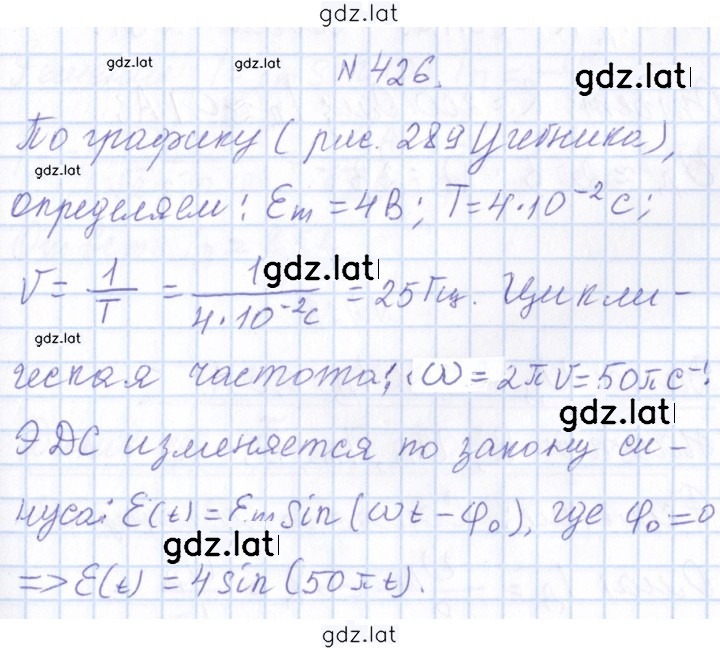 gdz.lat
gdz.lat gdz.lat № 426. gdz.lat
По графику (рис. 289 Учебника),
gdz.lat
определяем: Ɛm = 4В; T = 4·10⁻² с;
ν = 1/T = 1/(4·10⁻² с) = 25 Гц. Цикли-
gdz.lat
gdz.lat
ческая частота: ω = 2πν = 50π с⁻¹.
gdz.lat
ЭДС изменяется по закону си-
нуса: Ɛ(t) = Ɛm sin(ωt − φ₀), где φ₀ = 0
gdz.lat
=> Ɛ(t) = 4 sin(50πt).
gdz.lat